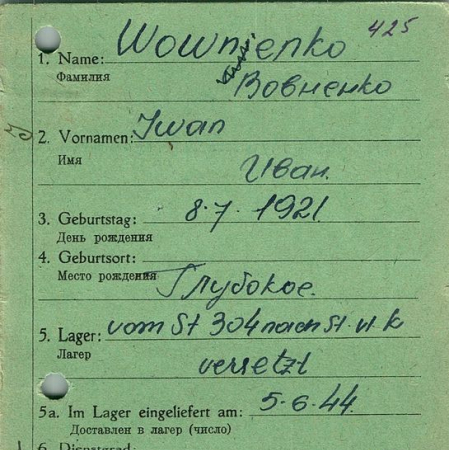 425
1. Name: Wownenko
Фамилия
Вовненко
2. Vornamen: Iwan
Имя
Иван.
3. Geburtstag: 8.7.1921
День рождения
4. Geburtsort:
Место рождения Глубокое.
5. Lager: vom St 304 nach St. VI. K
Лагер
versetzt
5a. Im Lager eingeliefert am: 5.6.44.
Доставлен в лагер (число)
6. Dienstgrad: